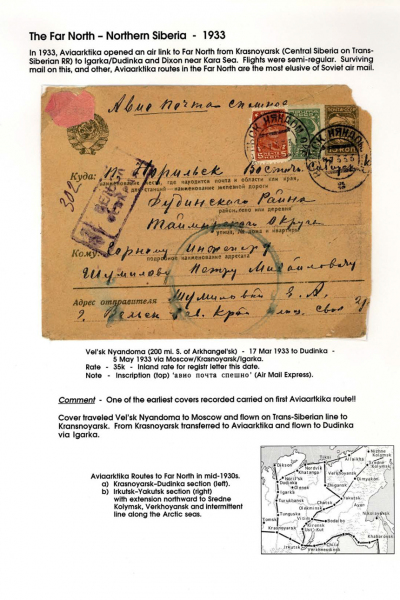 The Far North – Northern Siberia - 1933
In 1933, Aviaarktika opened an air link to Far North from Krasnoyarsk (Central Siberia on Trans-
Siberian RR) to Igarka/Dudinka and Dixon near Kara Sea. Flights were semi-regular. Surviving
mail on this, and other, Aviaarktika routes in the Far North are the most elusive of Soviet air mail.
Авио Почта спешно
302
Куда: п. Норильск Восточ. Сиб. к
наименование места, где находится почта и области или края,
станций—наименование железной дороги
Дудинского Района
район, село или деревня
Таймырского Округа
улица, № дома и квартиры
Кому: Горному Инженеру
подробное наименование адресата
Шумилову Петру Михайловичу
Адрес отправителя Шумиловой Е. А.
г. Вельск Сев. Края
Vel'sk Nyandoma (200 mi. S. of Arkhangel'sk) - 17 Mar 1933 to Dudinka -
5 May 1933 via Moscow/Krasnoyarsk/Igarka.
Rate - 35k - Inland rate for registr letter this date.
Note - Inscription (top) 'авио почта спешно' (Air Mail Express).
Comment - One of the earliest covers recorded carried on first Aviaarktika route!!
Cover traveled Vel'sk Nyandoma to Moscow and flown on Trans-Siberian line to
Kransnoyarsk. From Krasnoyarsk transferred to Aviaarktika and flown to Dudinka
via Igarka.
Aviaarktika Routes to Far North in mid-1930s.
a) Krasnoyarsk-Dudinka section (left).
b) Irkutsk-Yakutsk section (right)
with extension northward to Sredne
Kolymsk, Verkhoyansk and intermittent
line along the Arctic seas.
Nizhne
Kolymsk
Dikson
Nordvik
Khatanga
Noril'sk
Dudinka
Igarka
Turukhansk
Tunguska
Krasnoyarsk
Irkutsk
Chita
Khabarovsk